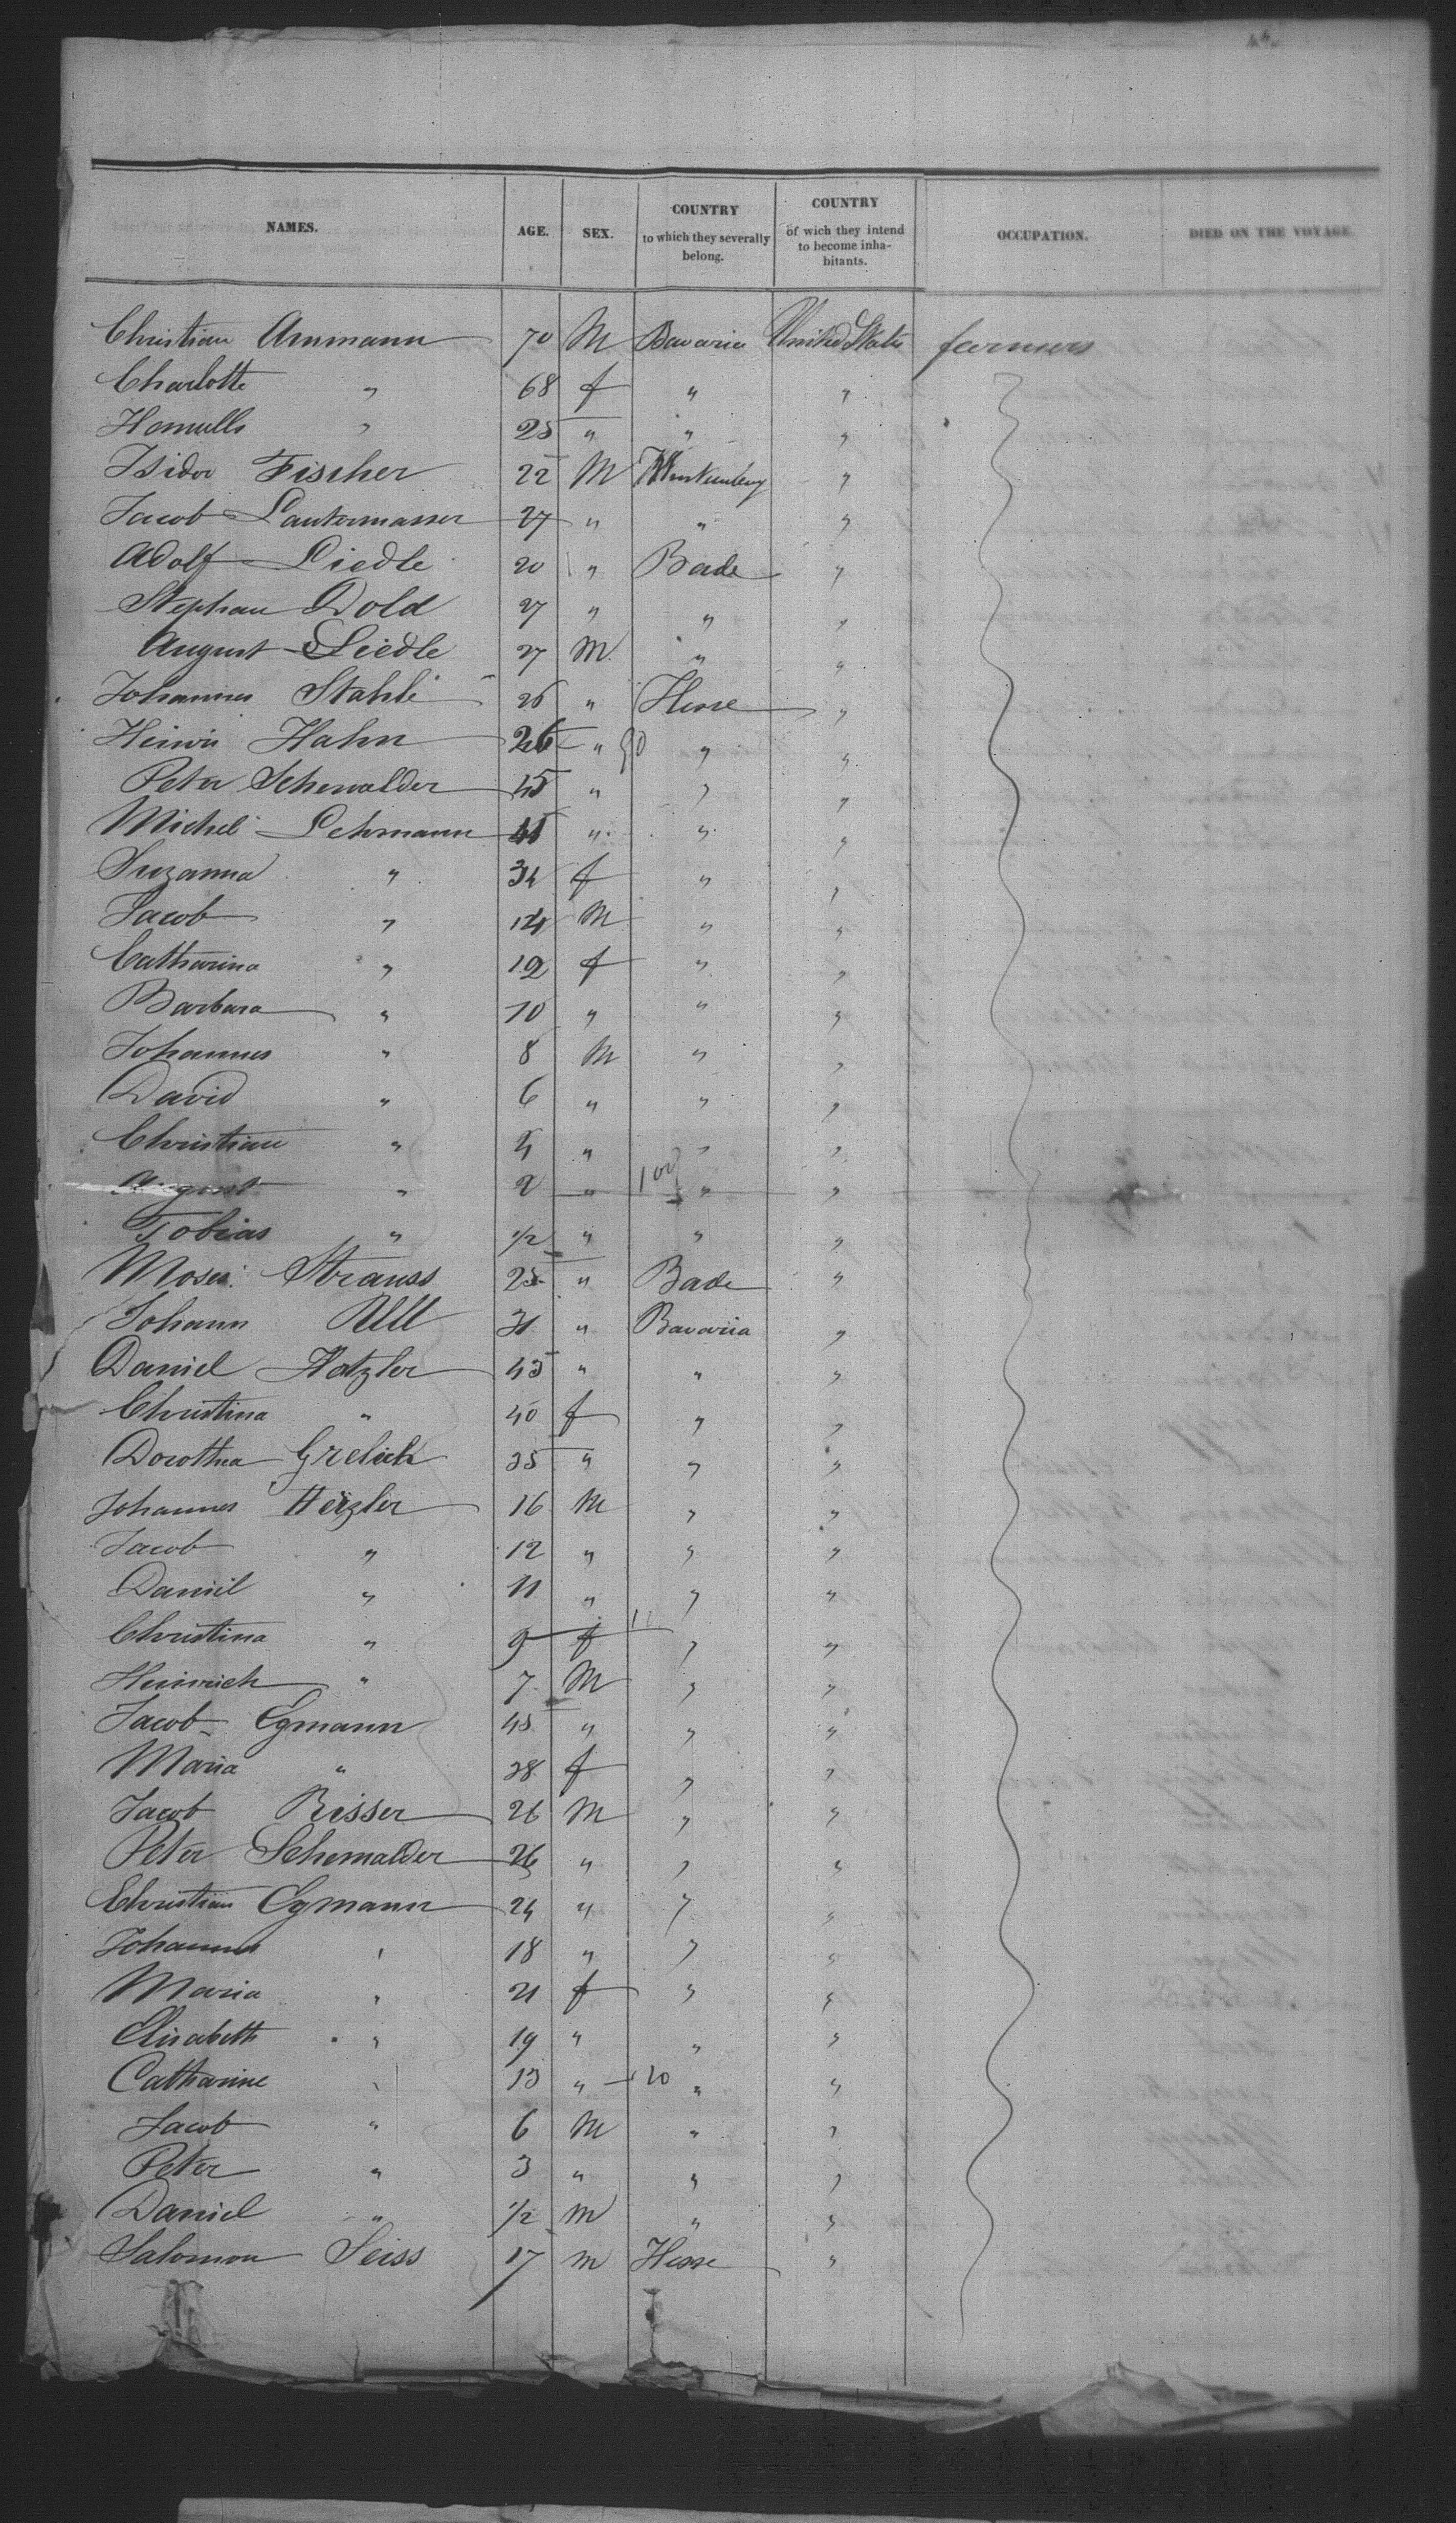 NAMES. AGE. SEX. COUNTRY to which they severally belong. COUNTRY of wich they intend to become inhabitants. OCCUPATION. DIED ON THE VOYAGE.
Christian Ammann 70 M Bavaria United States farmers
Charlotte " 68 f " "
" 25 " " "
Isidor Fischer 22 M Wurtemberg "
Jacob Lautermasser 27 " " "
Adolf Liedle 20 " Bade "
Stephan Dold 27 " " "
August Liedle 27 M. " "
Johannes Stahli 26 " Hesse "
Hahn 26 " 90 " "
Peter Schewalder 45 " " "
Michel Lehmann 41 " " "
Suzanna " 34 f " "
Jacob " 14 M " "
Catharina " 12 f " "
Barbara " 10 " " "
Johannes " 8 M " "
David " 6 " " "
Christian " 4 " " "
August " 2 " 100 " "
Tobias " 1/2 " " "
Moses Strauss 25 " Bade "
Johann Ull 31 " Bavaria "
Daniel Hatzler 43 " " "
Christina " 40 f " "
Dorothea Grelich 35 " " "
Johannes Herzler 16 M " "
Jacob " 12 " " "
Daniel " 11 " " "
Christina " 9 f 11 " "
Heinrich " 7 M " "
Jacob Egmann 45 " " "
Maria " 38 f " "
Jacob Risser 26 M " "
Peter Schemalder 26 " " "
Christian Egmann 24 " " "
Johannes " 18 " " "
Maria " 21 f " "
Elisabeth " 19 " " "
Catharine " 13 " 20 " "
Jacob " 6 M " "
Peter " 3 " " "
Daniel " 1/2 m " "
Salomon Seiss 17 m Hesse "